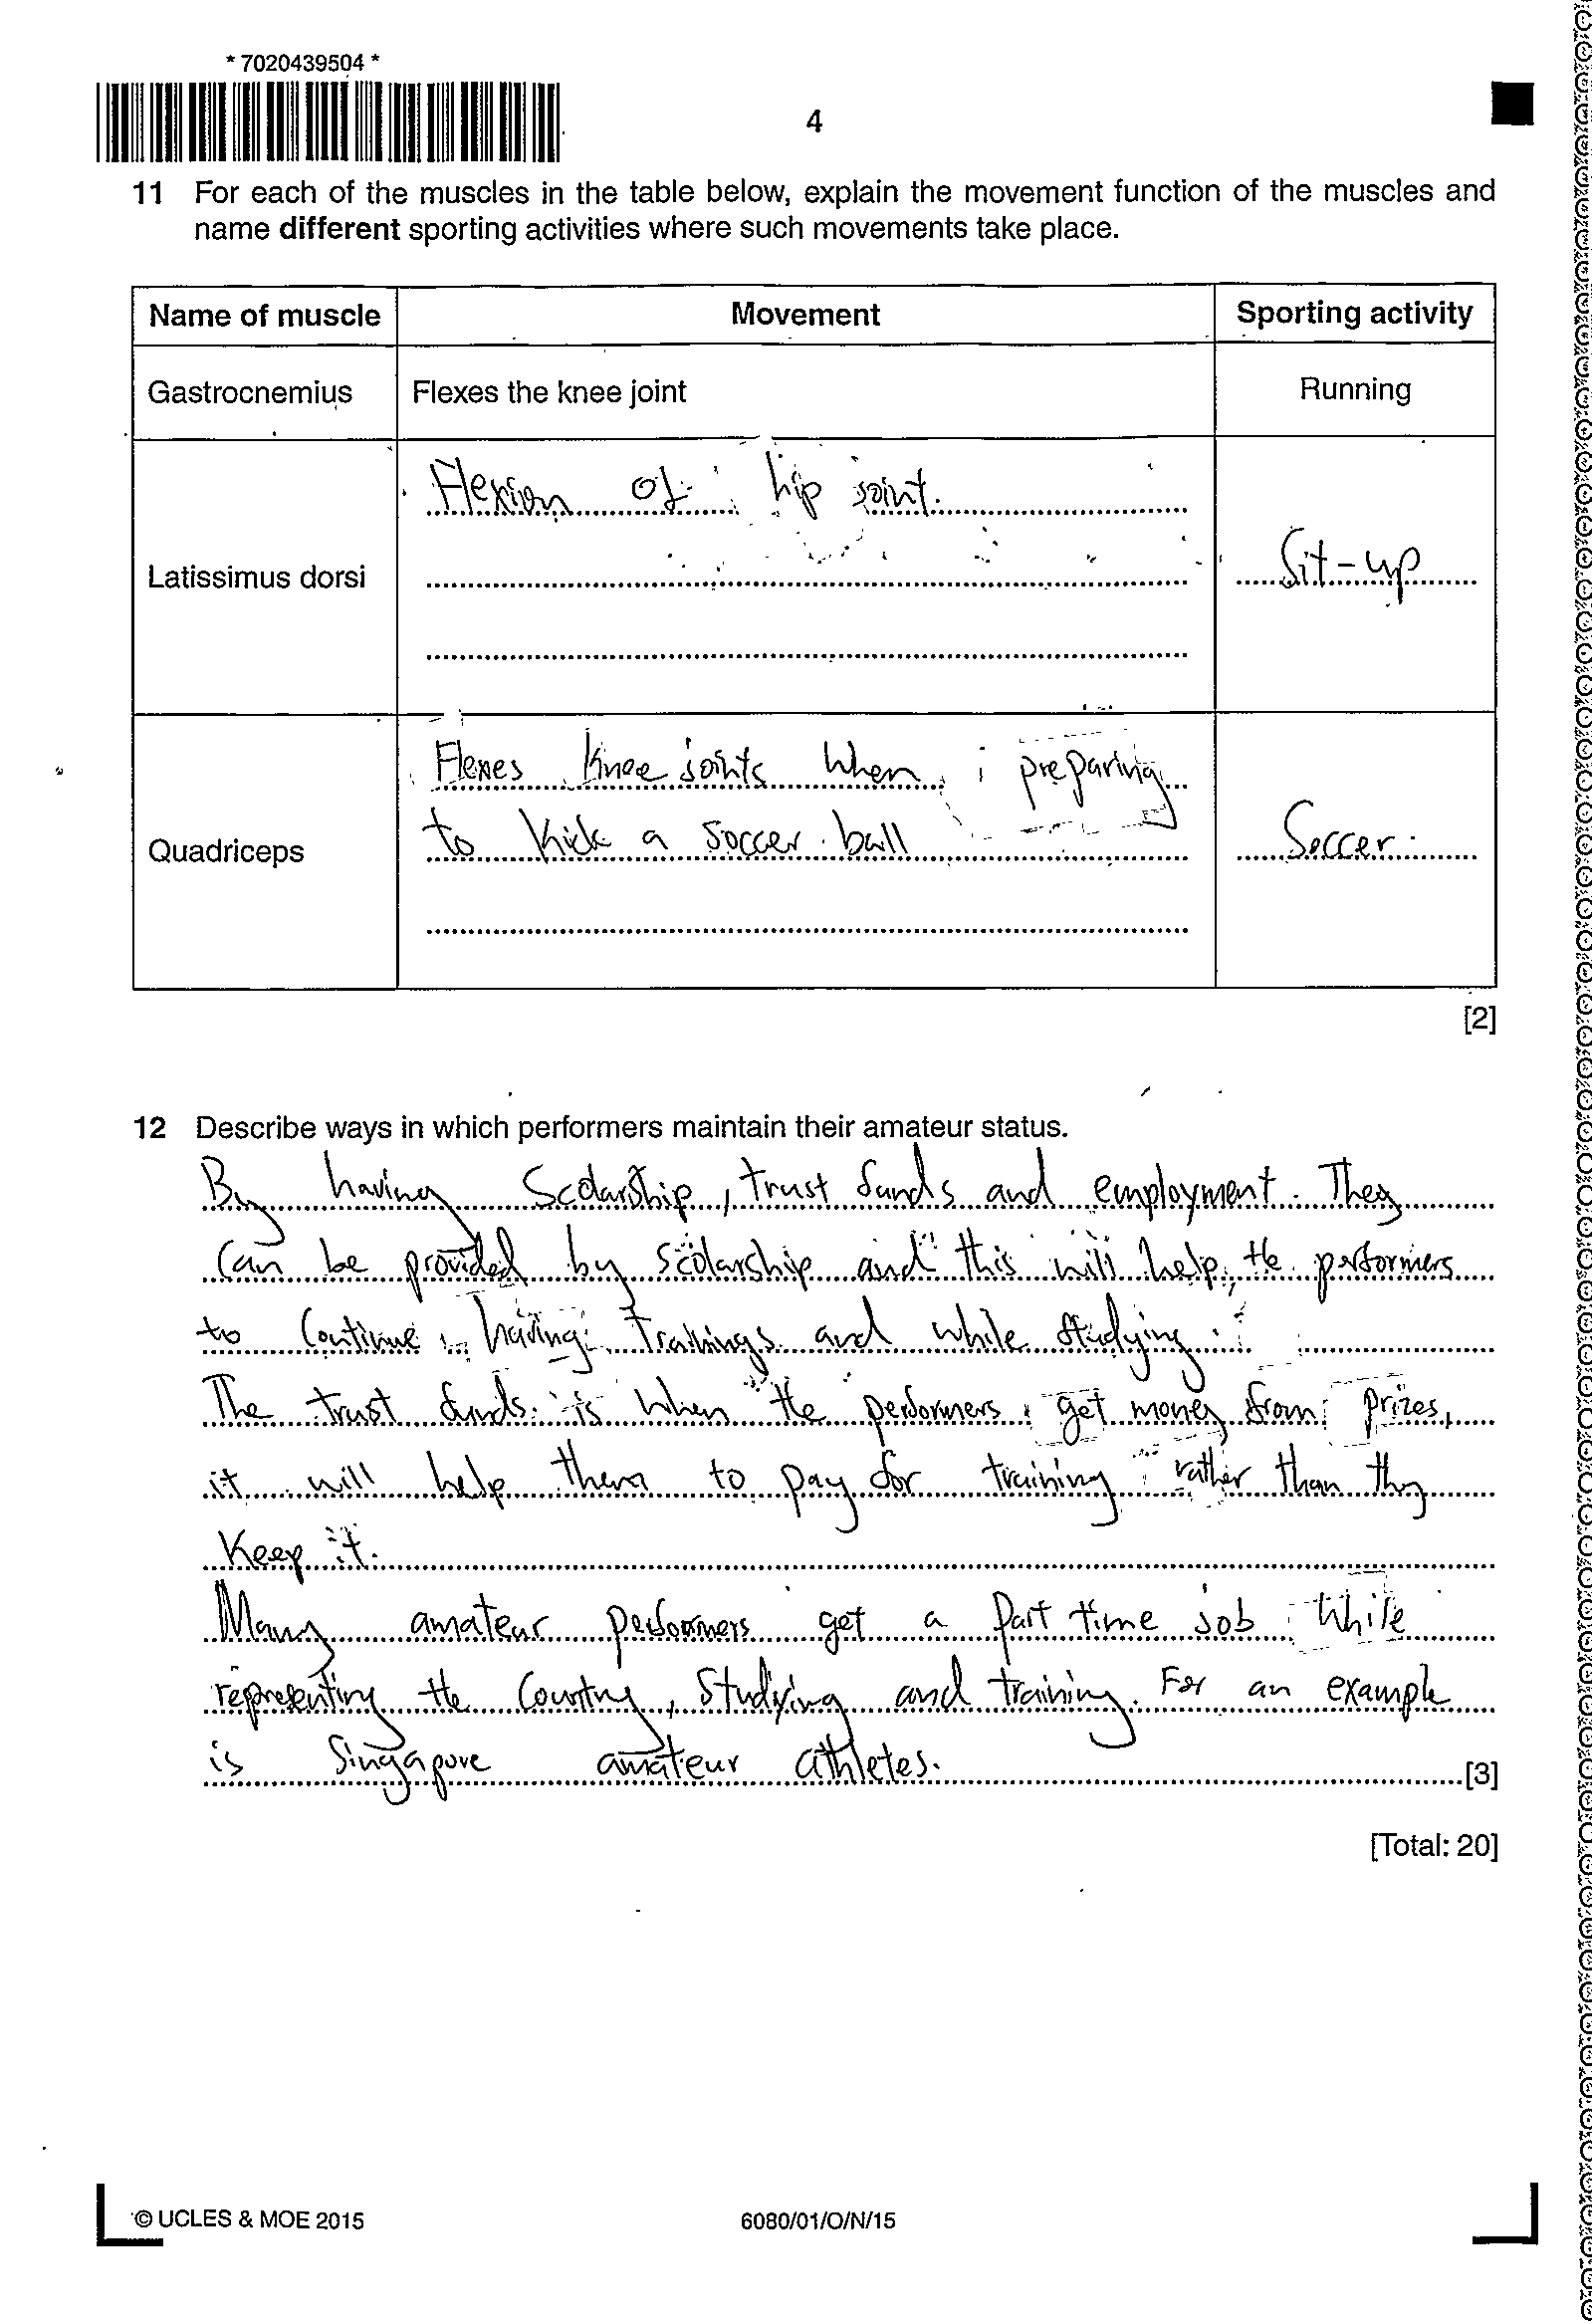 * 7020439504 *
4
11 For each of the muscles in the table below, explain the movement function of the muscles and
name different sporting activities where such movements take place.
Name of muscle Movement Sporting activity
Gastrocnemius Flexes the knee joint Running
Flexion of hip joint.
Latissimus dorsi Sit-up
Flexes knee joints when preparing
to kick a soccer ball
Quadriceps Soccer
[2]
12 Describe ways in which performers maintain their amateur status.
By having Scolarship, trust funds and employment. They
can be provided by scolarship and this will help the performers
to continue having trainings and while studying.
The trust funds is when the performers get money from prizes,
it will help them to pay for training rather than they
keep it.
Many amateur performers get a part time job while
representing the country, studying and training. For an example
is Singapore amateur athletes.
[3]
[Total: 20]
© UCLES & MOE 2015 6080/01/O/N/15